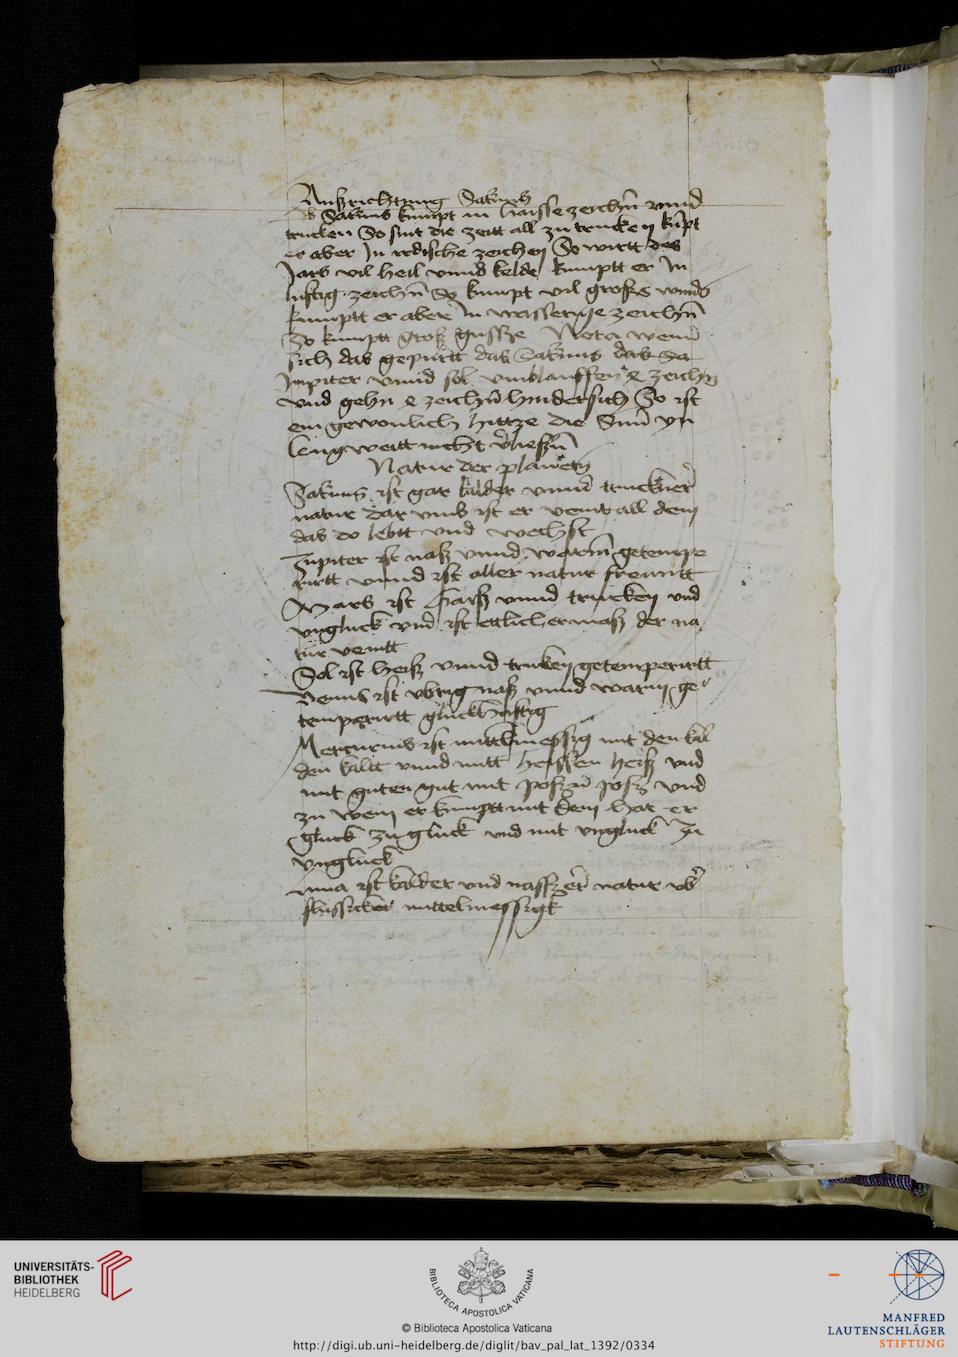 Auszrichtung Saturnus
Ob Saturnus kumpt in haisse zeichn̄ vnnd
trucken So sint die zeitt all zu trucken kūpt
er aber Jn irdische zeichen So wirtt des
Jars vil heil vnnd kelde kumptt er Jn
luftig zeichn̄ So kumpt vil groszs winds
kumptt er aber Jn wasserige zeichn̄
So kumptt grosz gussze Nota wenn
sich das gepurtt das Saturnus das Sa
Jupiter vnnd sol vmblauffen zeichn
vnd gehn zeichn̄ hindersich So ist
ein gewonlich hittze die Sun̄ yn
leng weitt nicht v̄lieszn̄
Natur der planetn̄
Saturnus ist gar kalder vnnd truckner
natur dar vmb ist er veint all dem
das do lebtt vnd wechst
Jupiter ist nasz vnnd warm̄ getempe
rirtt vnnd ist aller natur freuntt
Mars ist Haisz vnnd trucken vnd
vngluck vnd ist ettlichermasz der na
tur veintt
Sol ist heisz vnnd trucken getemperirtt
Venus ist vbrig nasz vnnd warm ge
temperirtt gluckhafftig
Mercurius ist mittelmessig mit den kal
den kaltt vnnd mitt heissen heisz vnd
mit guten gut mit poszn̄ posz vnd
zu wem er kumptt mit dem hat er
gluck zu gluck vnd mit vngluck zu
vngluck
Luna ist kalder vnd nasszer natur vb̄
flussicker mittelmessigk
UNIVERSITÄTS-
BIBLIOTHEK
HEIDELBERG
BIBLIOTECA APOSTOLICA VATICANA
© Biblioteca Apostolica Vaticana
http://digi.ub.uni-heidelberg.de/diglit/bav_pal_lat_1392/0334
MANFRED
LAUTENSCHLÄGER
STIFTUNG